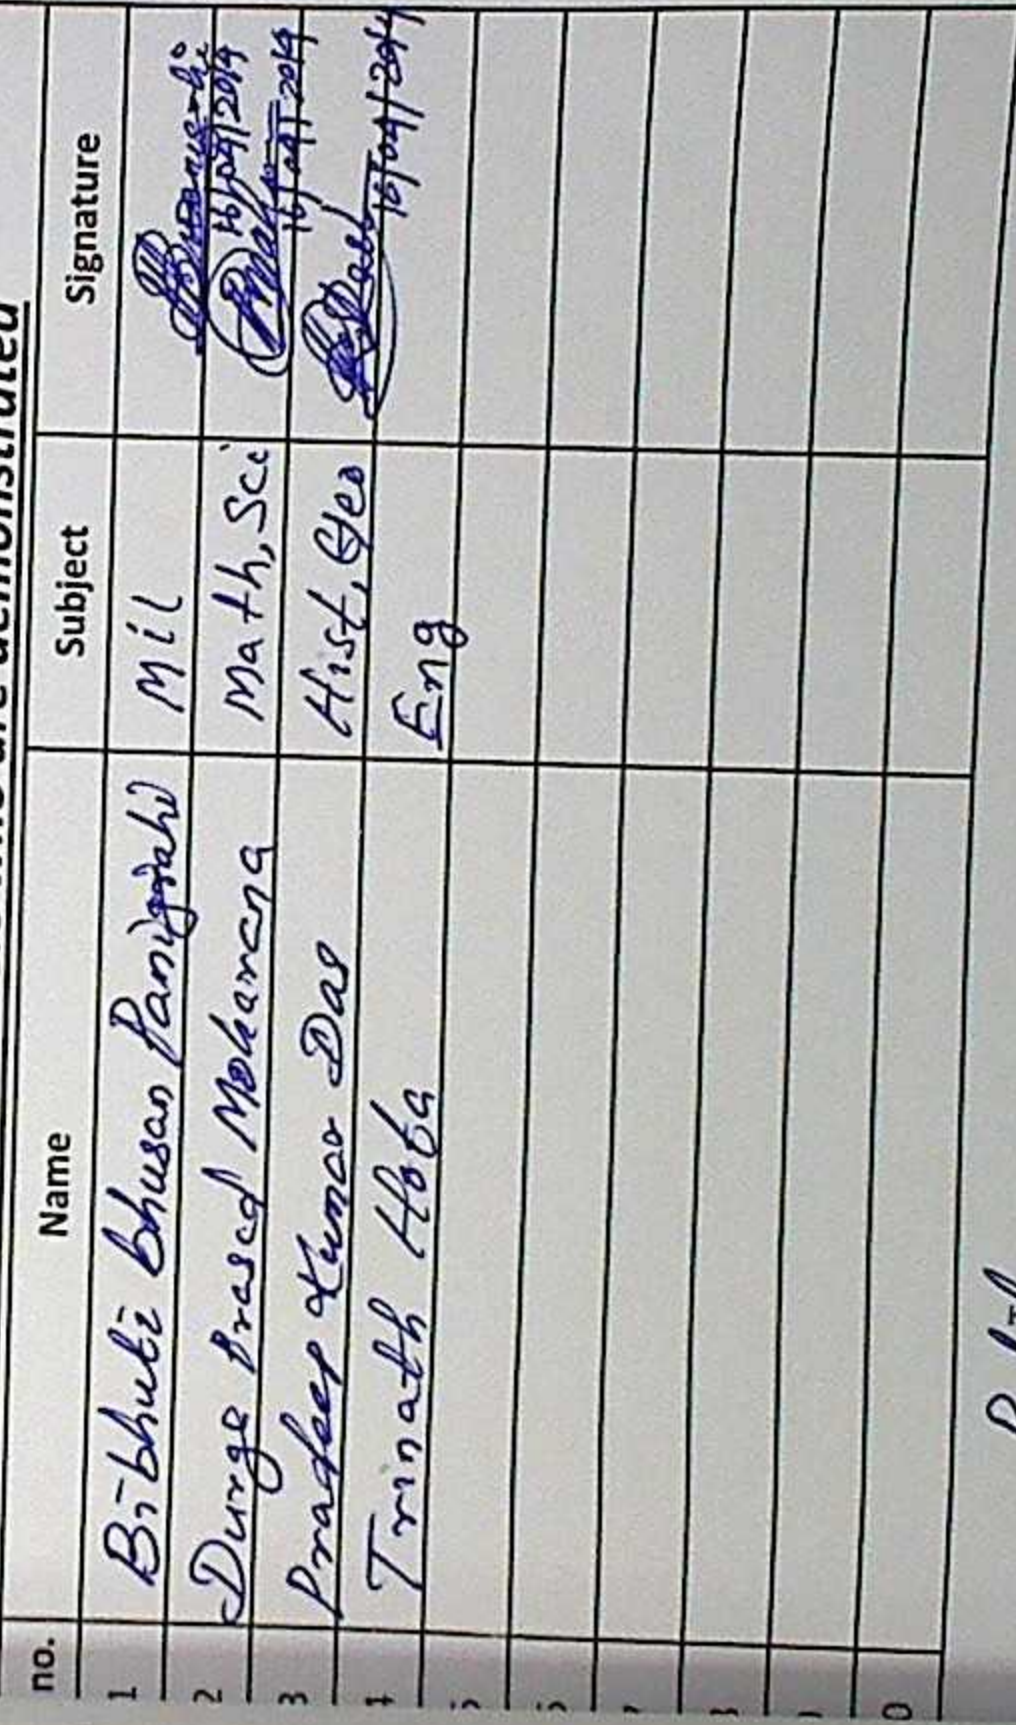 are demonstrated
no. Name Subject Signature
1 Bibhuti bhusan Panigrahi Mil
16/09/2019
2 Durga Prasad Moharana Math, Sci
16/09/2019
3 Pradeep Kumar Das Hist, Geo
16/09/2019
Trinath Hota Eng